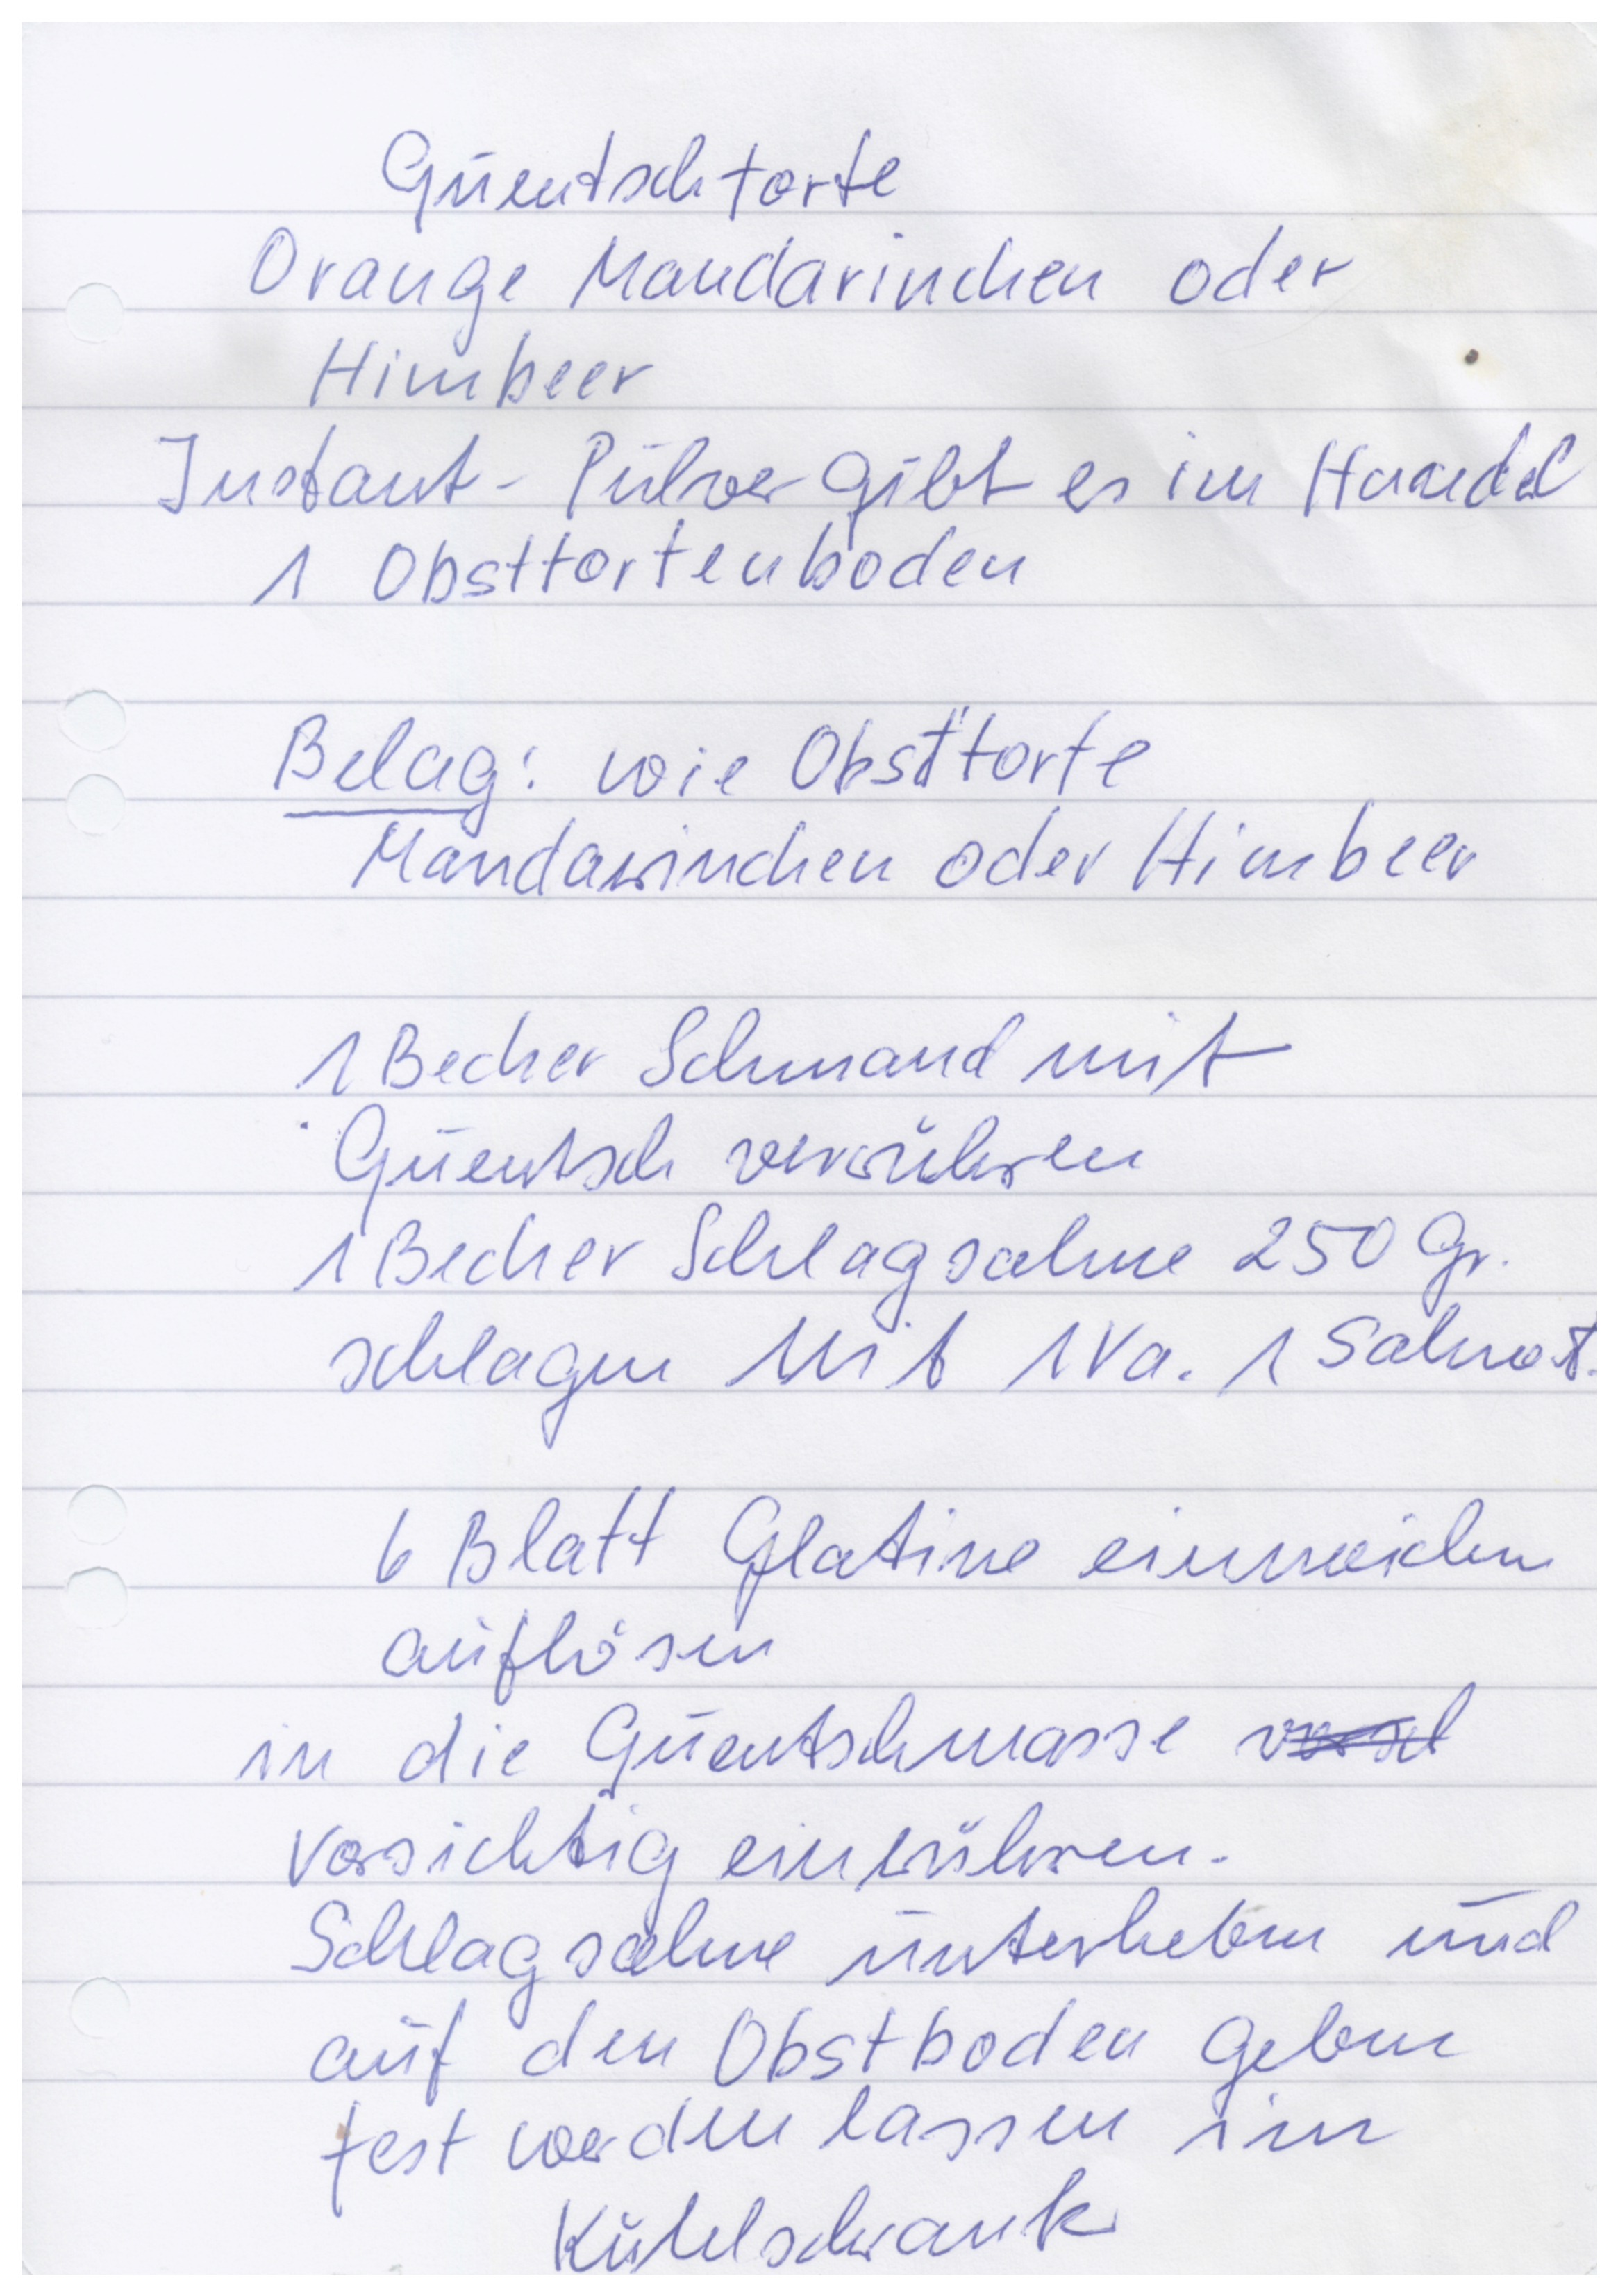 Guentschtorte
Orange Mandarinchen oder
Himbeer
Instant- Pulver gibt es im Handel
1 Obsttortenboden
Belag: wie Obsttorte
Mandarinchen oder Himbeer
1 Becher Schmand mit
Guentsch verrühren
1 Becher Schlagsahne 250 Gr.
schlagen Mit 1 Va. 1 Sahnest.
6 Blatt Glatine einweichen
auflösen
in die Guentschmasse
vorsichtig einrühren.
Schlagsahne unterheben und
auf den Obstboden geben
fest werden lassen im
Kühlschrank